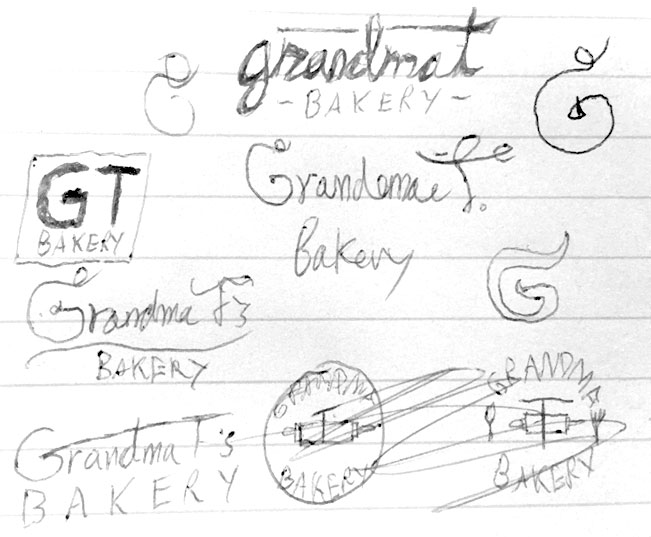 grandmat
- BAKERY -
G
G
GT
BAKERY
Grandmae T.
Bakery
G
Grandma T's
BAKERY
Grandma T's
BAKERY
GRANDMA
T
BAKERY
GRANDMA
T
BAKERY